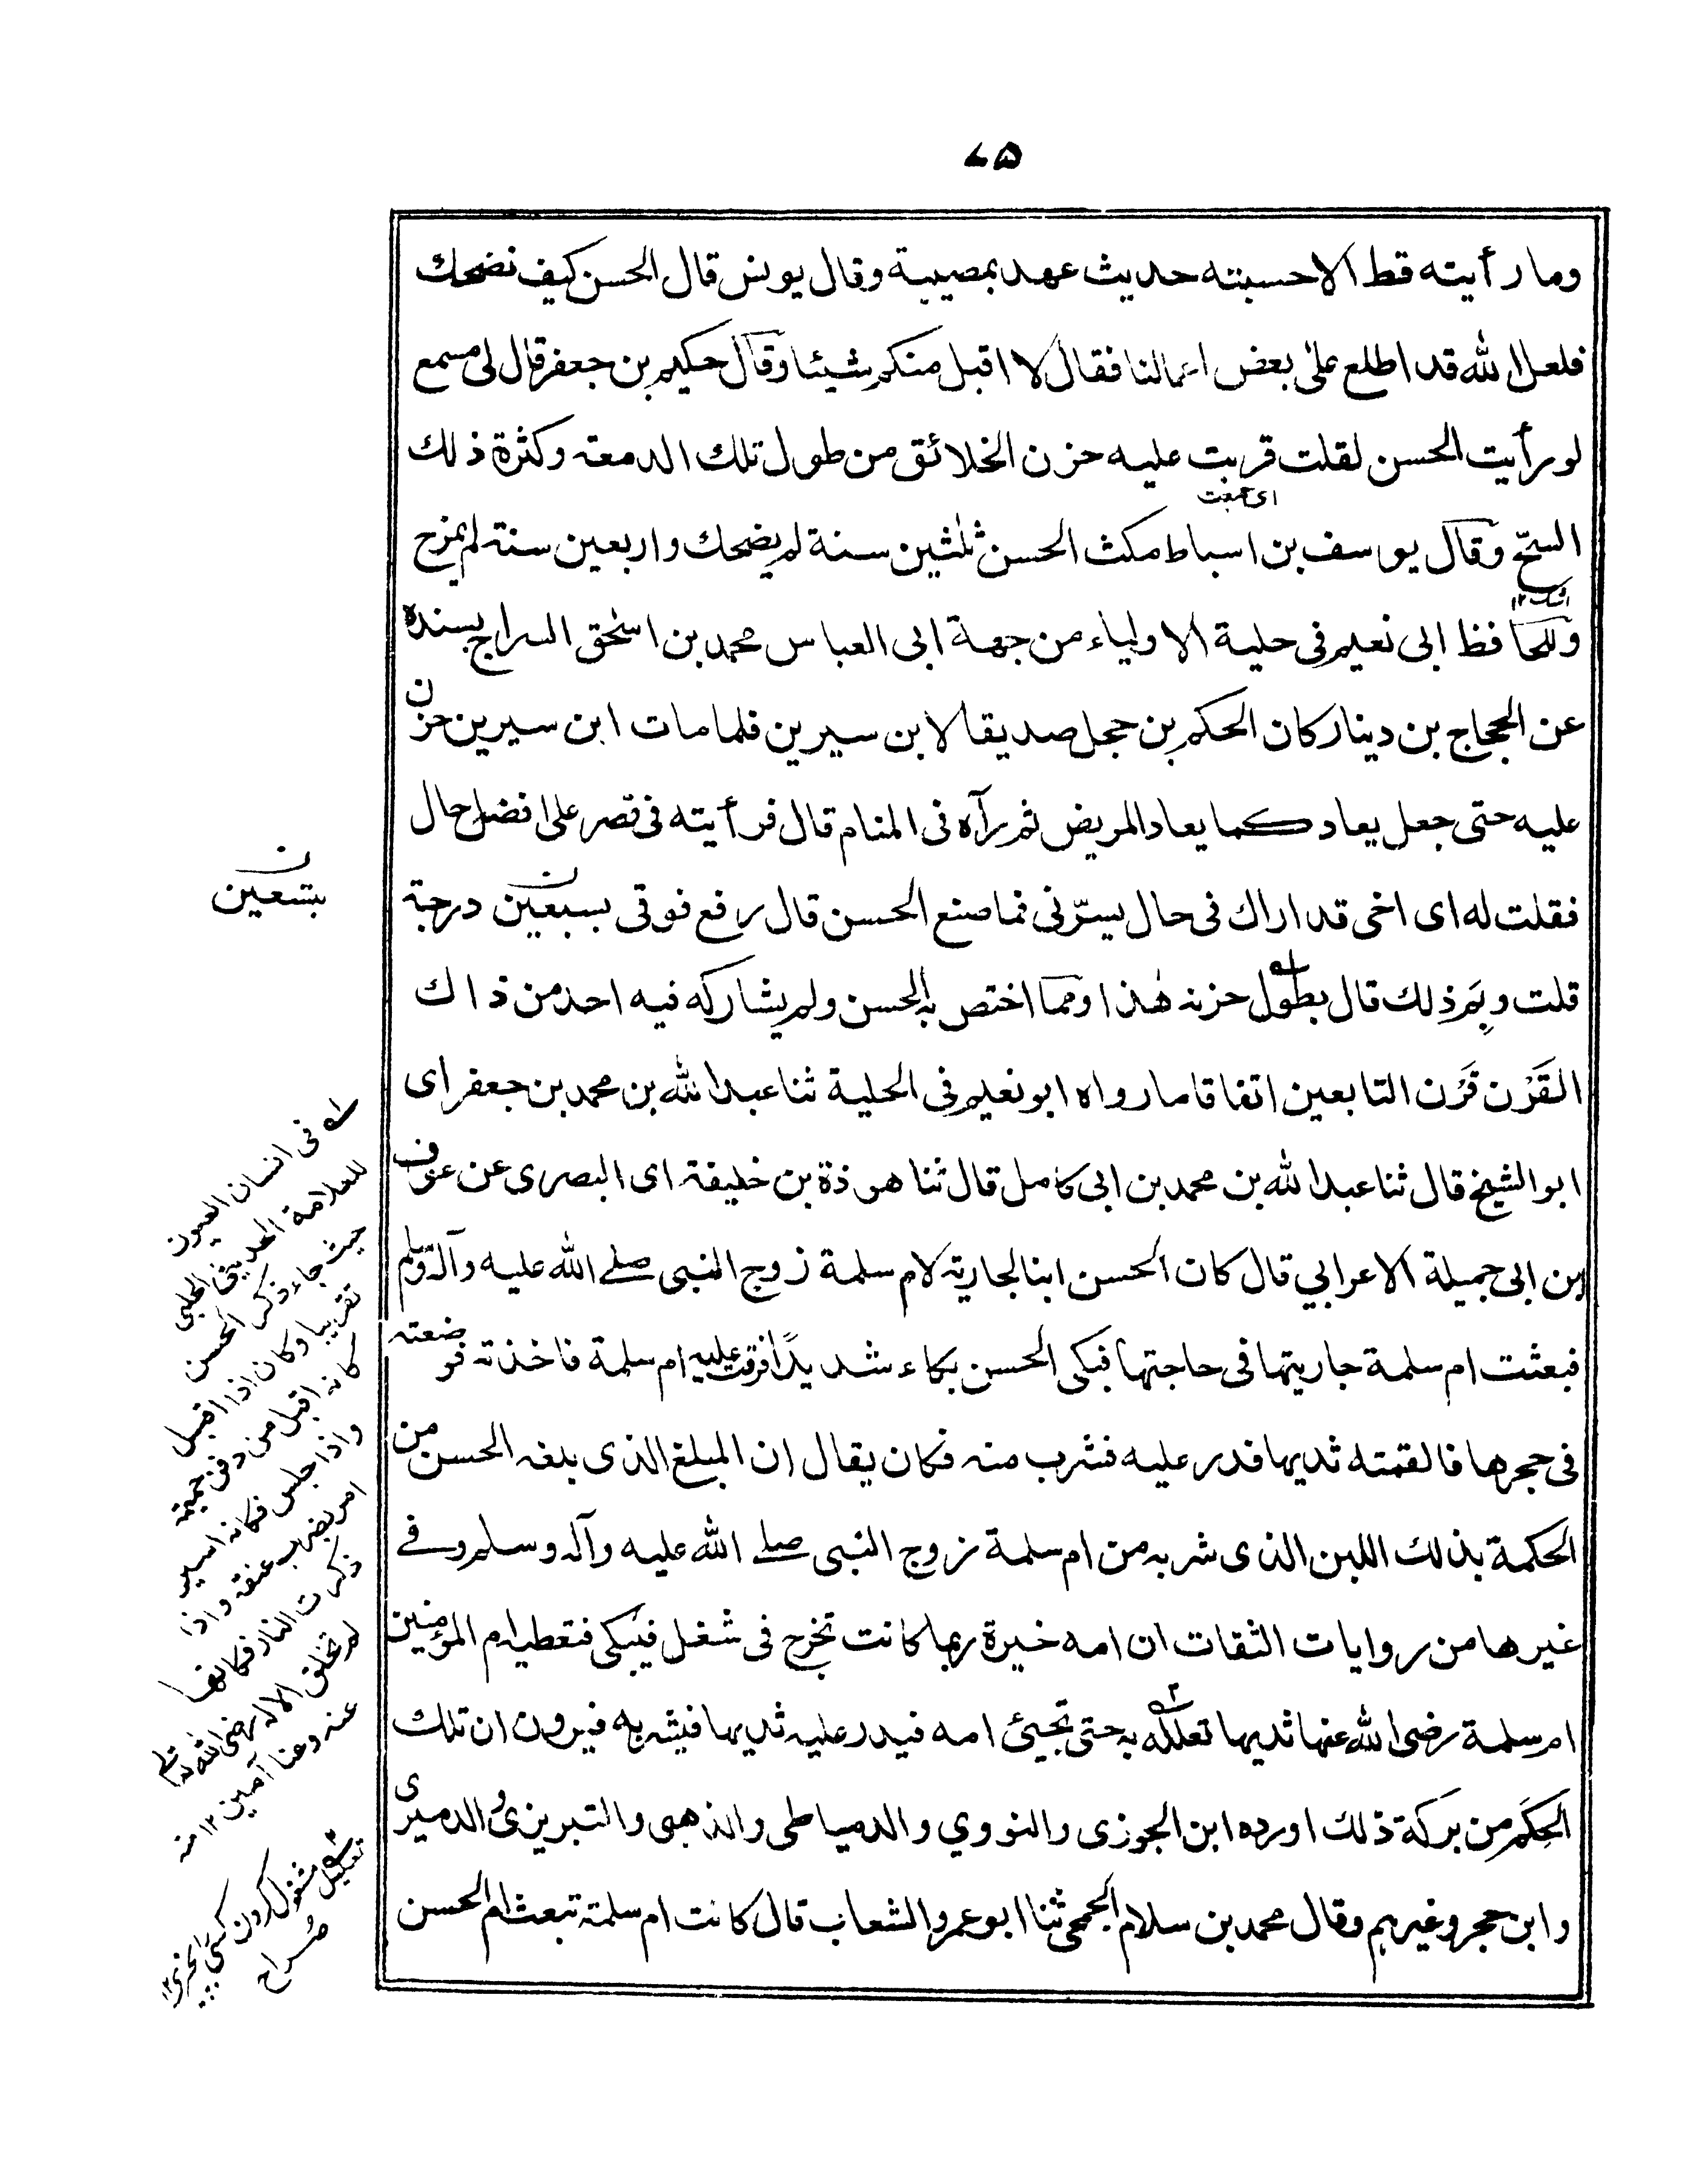 ٤٥
وما رأيته قط الا حسبته حديث عهد بمصيبة وقال يونس قال الحسن كيف نضحك
فلعل الله قد اطلع على بعض اعمالنا فقال لا اقبل منكم شيئا وقال حكيم بن جعفر قال لى مسمع
لو رأيت الحسن لقلت قربت عليه حزن الخلائق من طول تلك الدمعة وكثرة ذلك
اى جمعت
السحّ وقال يوسف بن اسباط مكث الحسن ثلٰثين سنة لم يضحك واربعين سنة لم يمزح
اشك ١٢
وللحافظ ابى نعيم فى حلية الاولياء من جهة ابى العباس محمد بن اسٰحق السراج بسنده
عن الحجاج بن دينار كان الحكم بن حجل صديقا لابن سيرين فلما مات ابن سيرين حزن
عليه حتى جعل يعاد كما يعاد المريض ثم رآه فى المنام قال فرأيته فى قصر على افضل حال
فقلت له اى اخى قد اراك فى حال يسرّنى فما صنع الحسن قال رفع فوقى بسبعين درجة
قلت وبم ذلك قال بطول حزنه هٰذا ومما اختص به الحسن ولم يشاركه فيه احد من ذاك
القَرْن قَرْن التابعين اتفاقا ما رواه ابو نعيم فى الحلية ثنا عبد الله بن محمد بن جعفر اى
ابو الشيخ قال ثنا عبد الله بن محمد بن ابى كامل قال ثنا هوذة بن خليفة اى البصرى عن عوف
بن ابى جميلة الاعرابي قال كان الحسن ابنا لجارية لام سلمة زوج النبى صلے الله عليه وآله وسلم
فبعثت ام سلمة جاريتها فى حاجتها فبكى الحسن بكاء شديدًا فرقت عليه ام سلمة فاخذته فوضعته
فى حجرها فالقمته ثديها فدر عليه فشرب منه فكان يقال ان المبلغ الذى بلغه الحسن من
الحكمة بذلك اللبن الذى شربه من ام سلمة زوج النبى صلے الله عليه وآله وسلم وفے
غيرها من روايات الثقات ان امه خيرة ربما كانت تخرج فى شغل فيبكى فتعطيه ام المؤمنين
ام سلمة رضى الله عنها ثديها تعلله به حتى تجيئ امه فيدر عليه ثديها فيشربه فيرون ان تلك
الحِكَم من بركة ذلك اورده ابن الجوزى والنووي والدمياطى والذهبى والتبريزى والدميرى
وابن حجر وغيرهم وقال محمد بن سلام الجمحى ثنا ابو عمرو الشعاب قال كانت ام سلمة تبعث ام الحسن
ن
بتسعين
له فى انسان العيون
للعلامة الحلبى
حيث جاء ذكر الحسن
تقريبا وكان اذا اقبل
كانه اقبل من دفن حميمه
واذا جلس فكانه اسير
امر بضرب عنقه واذا
ذكرت النار فكانها
لم تخلق الا له رضى الله تعالى
عنه وعنا آمين ١٢ منه
تعليل مشغول كردن كسى
صراح